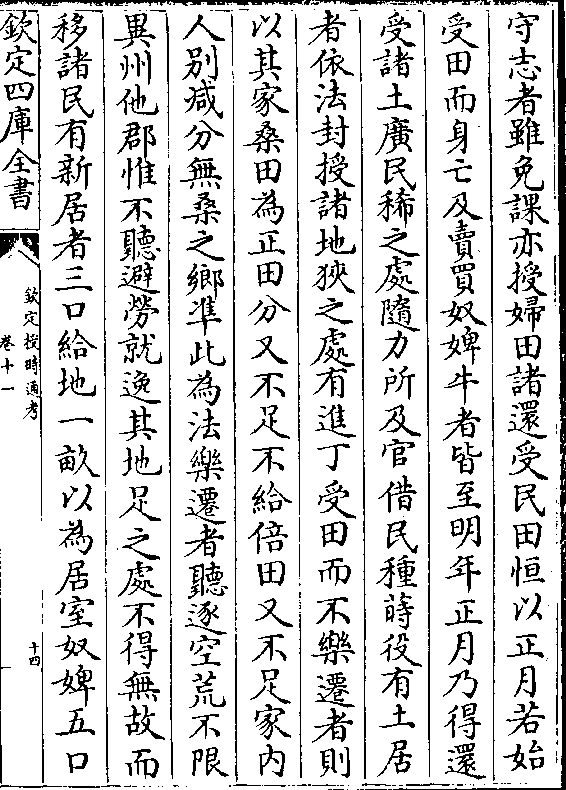 守志者雖免課亦授婦田諸還受民田恒以正月若始
受田而身亡及賣買奴婢牛者皆至明年正月乃得還
受諸土廣民稀之處隨力所及官借民種蒔役有土居
者依法封授諸地狹之處有進丁受田而不樂遷者則
以其家桑田為正田分又不足不給倍田又不足家内
人别減分無桑之鄉準此為法樂遷者聽逐空荒不限
異州他郡惟不聽避勞就逸其地足之處不得無故而
移諸民有新居者三口給地一畝以為居室奴婢五口
欽定四庫全書
欽定授時通考
卷十一
十四